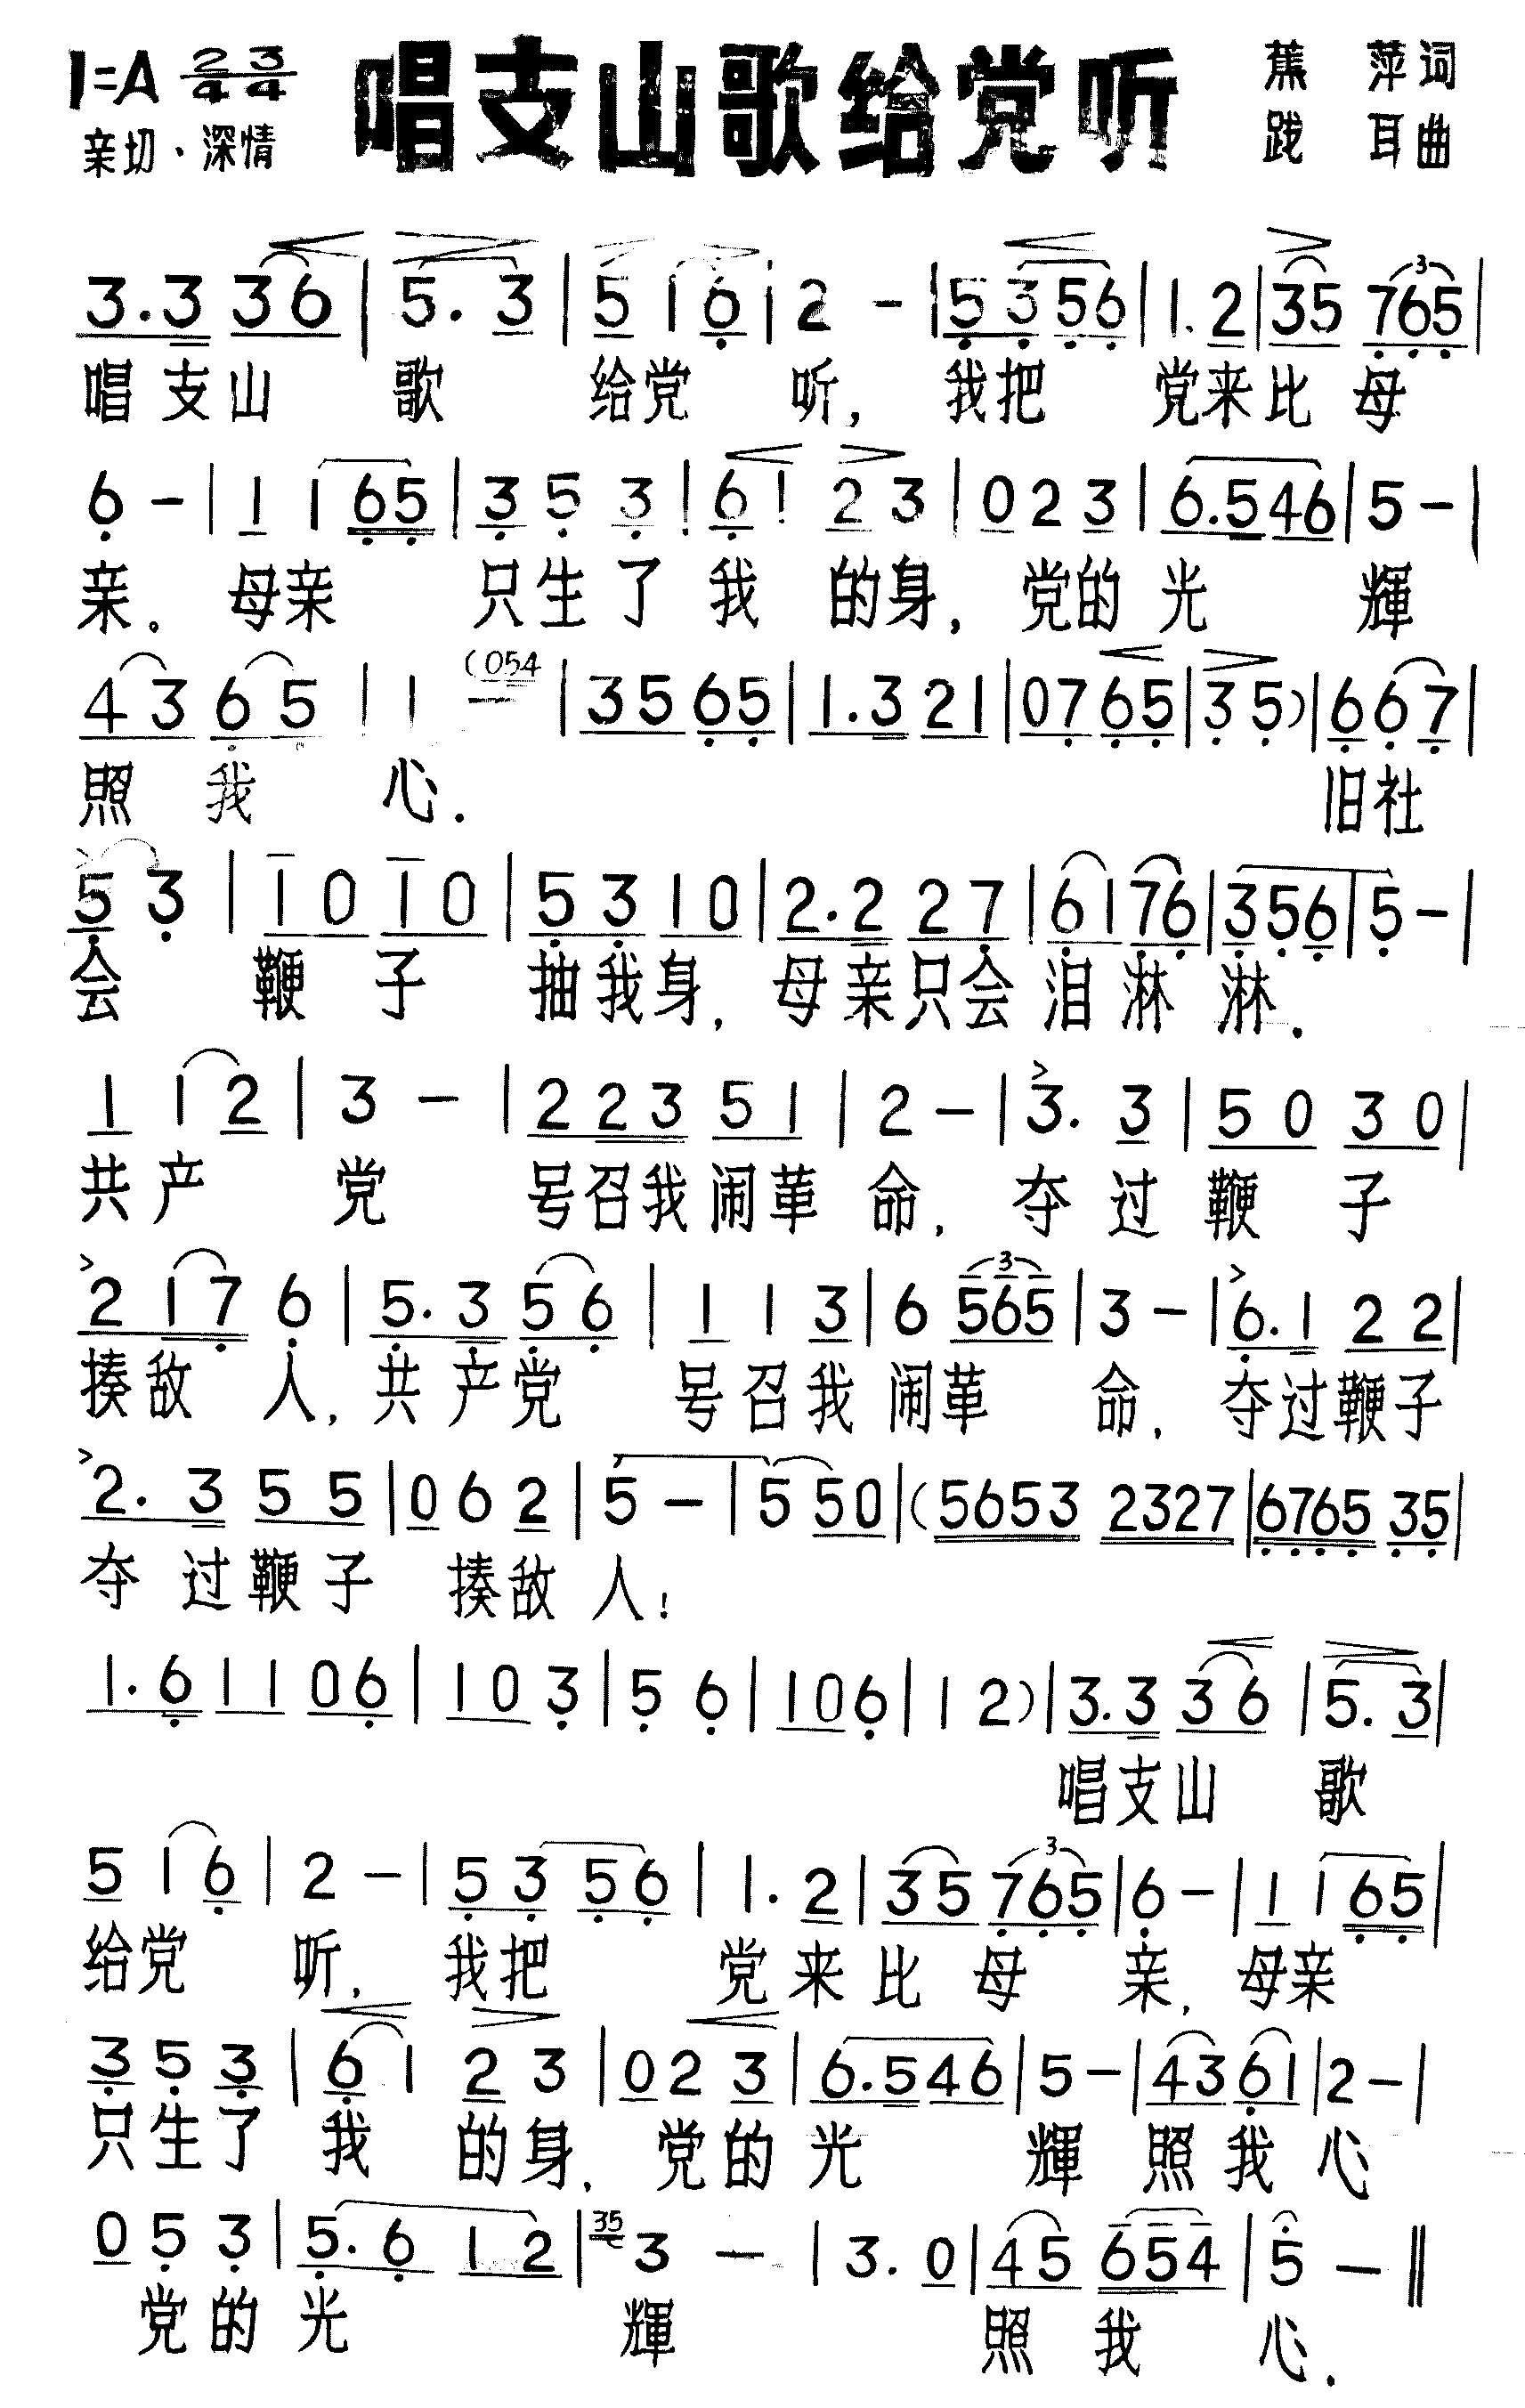 1=A 2/4 3/4 唱支山歌给党听 蕉 萍词
亲切·深情 践 耳曲
3.3 36 | 5. 3 | 5 1 6 | 2 - | 5 3 56 | 1. 2 | 35 765 |
唱支山 歌 给党 听, 我把 党来比 母
6 - | 1 1 65 | 3 5 3 | 6 1 2 3 | 0 2 3 | 6.5 46 | 5 - |
亲. 母亲 只生了 我 的身, 党的 光 輝
4 3 6 5 | 1 (054 | 35 65 | 1.3 21 | 07 65 | 3 5) | 6 6 7 |
照 我 心. 旧社
5 3 | 1 0 1 0 | 5 3 1 0 | 2.2 2 7 | 61 76 | 3 5 6 | 5 - |
会 鞭 子 抽我身, 母亲只会 泪淋 淋.
1 1 2 | 3 - | 2 2 3 5 1 | 2 - | 3. 3 | 5 0 3 0 |
共产 党 号召我闹革 命, 夺过 鞭 子
2 1 7 6 | 5. 3 5 6 | 1 1 3 | 6 565 | 3 - | 6.1 2 2 |
揍敌 人, 共产党 号召我 闹革 命, 夺过鞭子
2. 3 5 5 | 0 6 2 | 5 - | 5 50 | (5653 2327 | 6765 35 |
夺过鞭子 揍敌人!
1.6 11 06 | 10 3 | 5 6 | 10 6 | 1 2) | 3.3 3 6 | 5. 3 |
唱支山 歌
5 1 6 | 2 - | 5 3 5 6 | 1. 2 | 3 5 765 | 6 - | 1 1 65 |
给党 听, 我把 党来比 母 亲, 母亲
3 5 3 | 6 1 2 3 | 0 2 3 | 6.5 46 | 5 - | 43 61 | 2 - |
只生了 我 的身, 党的 光 輝 照我心
0 5 3 | 5. 6 1 2 | 35 3 - | 3. 0 | 45 654 | 5 - ‖
党的 光 輝 照 我 心.